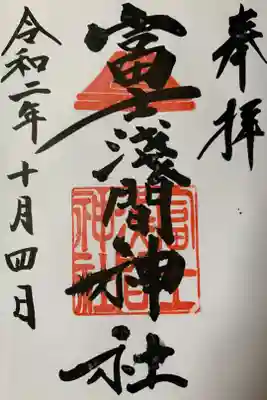 奉拝
富士浅間神社
令和二年十月四日
富士
浅間
神社